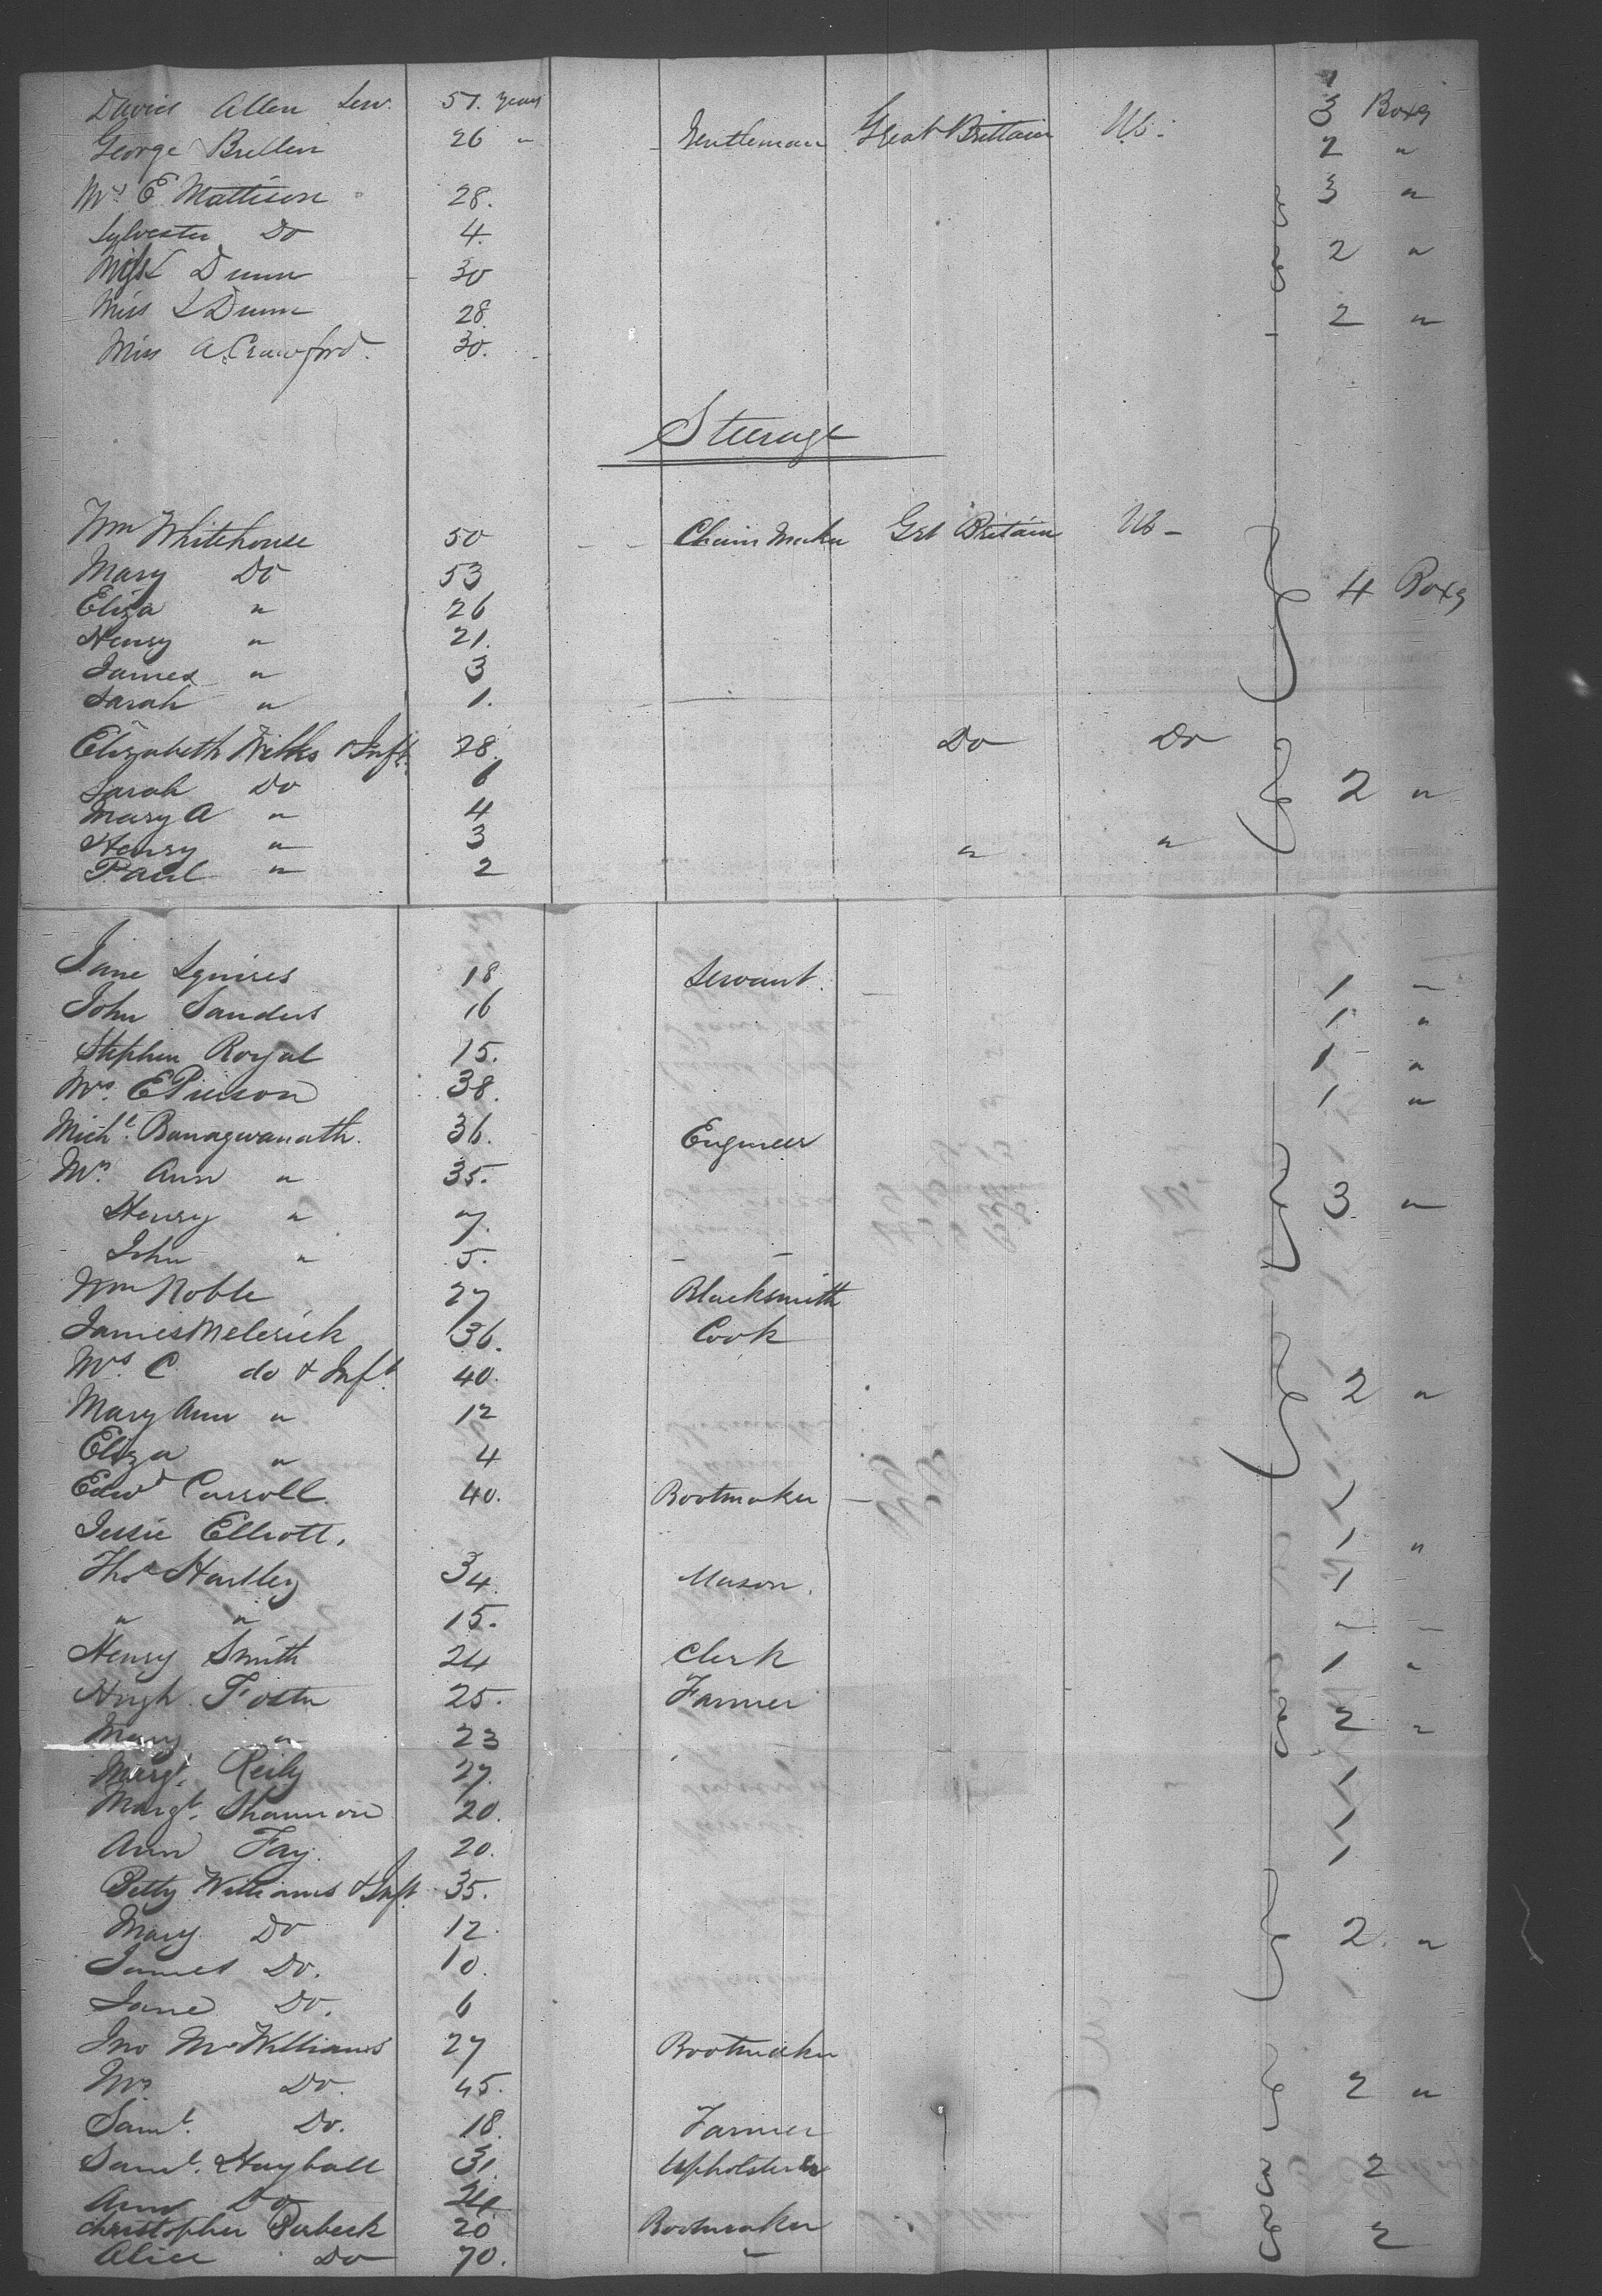 David Allen Sen. 51. years 1
3 Boxs
George Bullen 26 " Gentleman Great Brittain US- 2 "
Mrs E Mattison 28. 3 "
Sylvester Do 4.
Miss L Dunn 30 2 "
Miss L Dunn 28.
Miss A Crawford. 30. 2 "
Steerage
Wm Whitehouse 50 Chain Maker Grt Britain US-
Mary Do 53 4 Boxs
Eliza " 26
Henry " 21.
James " 3
Sarah " 1.
Elizabeth Wilks & Inft. 28. Do Do
Sarah Do 6 2 "
Mary A " 4
Henry " 3 " "
Paul " 2
Jane Squires 18 Servant. 1 "
John Sanders 16 1 "
Stephen Royal 15. 1 "
Mrs. E Pierson 38. 1 "
Michl. Banagwanath. 36. Engineer
Mrs. Ann " 35. 3 "
Henry " 7.
John " 5.
Wm Noble 27 Blacksmith
James Melerick 36. Cook
Mrs. C do & Inft. 40. 2 "
Mary Ann " 12
Eliza " 4
Edwd Carroll. 40. Bootmaker 1
Jessie Elliott. 1 "
Thos Hartley 34. Mason. 1
" " 15. - -
Henry Smith 24 Clerk 1 "
Hugh Foster 25. Farmer 2 "
Mary " 23
Margt. Reily 27. 1
Margt. Shannon 20. 1
Ann Fay. 20. 1
Betty Williams & Inft 35.
Mary Do 12. 2. "
James Do. 10.
Jane Do. 6
Jno McWilliams 27 Bootmaker
Mrs. Do. 45. 2 "
Saml. Do. 18. Farmer
Saml. Hayball 31. Upholsterer 2
Ann Do 24
Christopher Purbeck 20 Bootmaker 2
Alice Do 70.